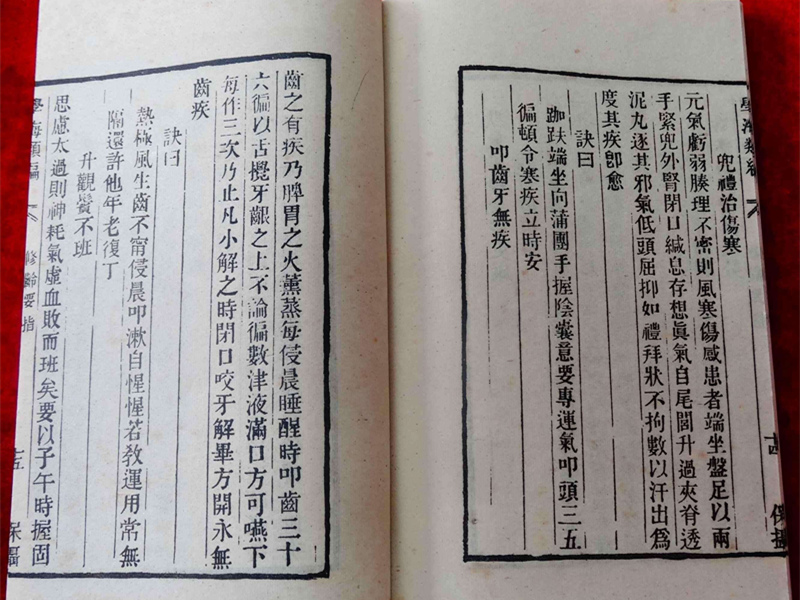 學海類編
兜禮治傷寒
元氣虧弱腠理不密則風寒傷感患者端坐盤足以兩
手緊兜外腎閉口緘息存想眞氣自尾閭升過夾脊透
泥丸逐其邪氣低頭屈抑如禮拜狀不拘數以汗出爲
度其疾卽愈
訣曰
跏趺端坐向蒲團手握陰囊意要專運氣叩頭三五
徧頓令寒疾立時安
叩齒牙無疾
齒之有疾乃脾胃之火薰蒸每侵晨睡醒時叩齒三十
六徧以舌攪牙齦之上不論徧數津液滿口方可嚥下
每作三次乃止凡小解之時閉口咬牙解畢方開永無
齒疾
訣曰
熱極風生齒不甯侵晨叩漱自惺惺若敎運用常無
隔還許他年老復丁
升觀鬢不班
思慮太過則神耗氣虛血敗而班矣要以子午時握固
學海類編
修齡要指
保攝